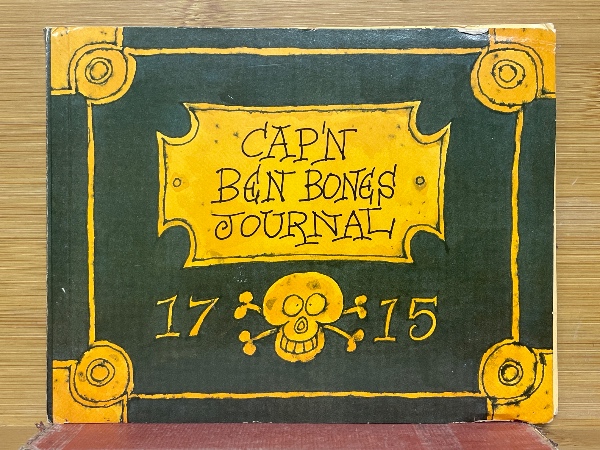 CAP'N
BEN BONES
JOURNAL
17 15